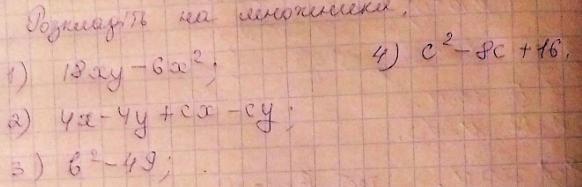 Розкладіть на множники.
1) 18xy - 6x²;
2) 4x - 4y + cx - cy;
3) b² - 49;
4) c² - 8c + 16.